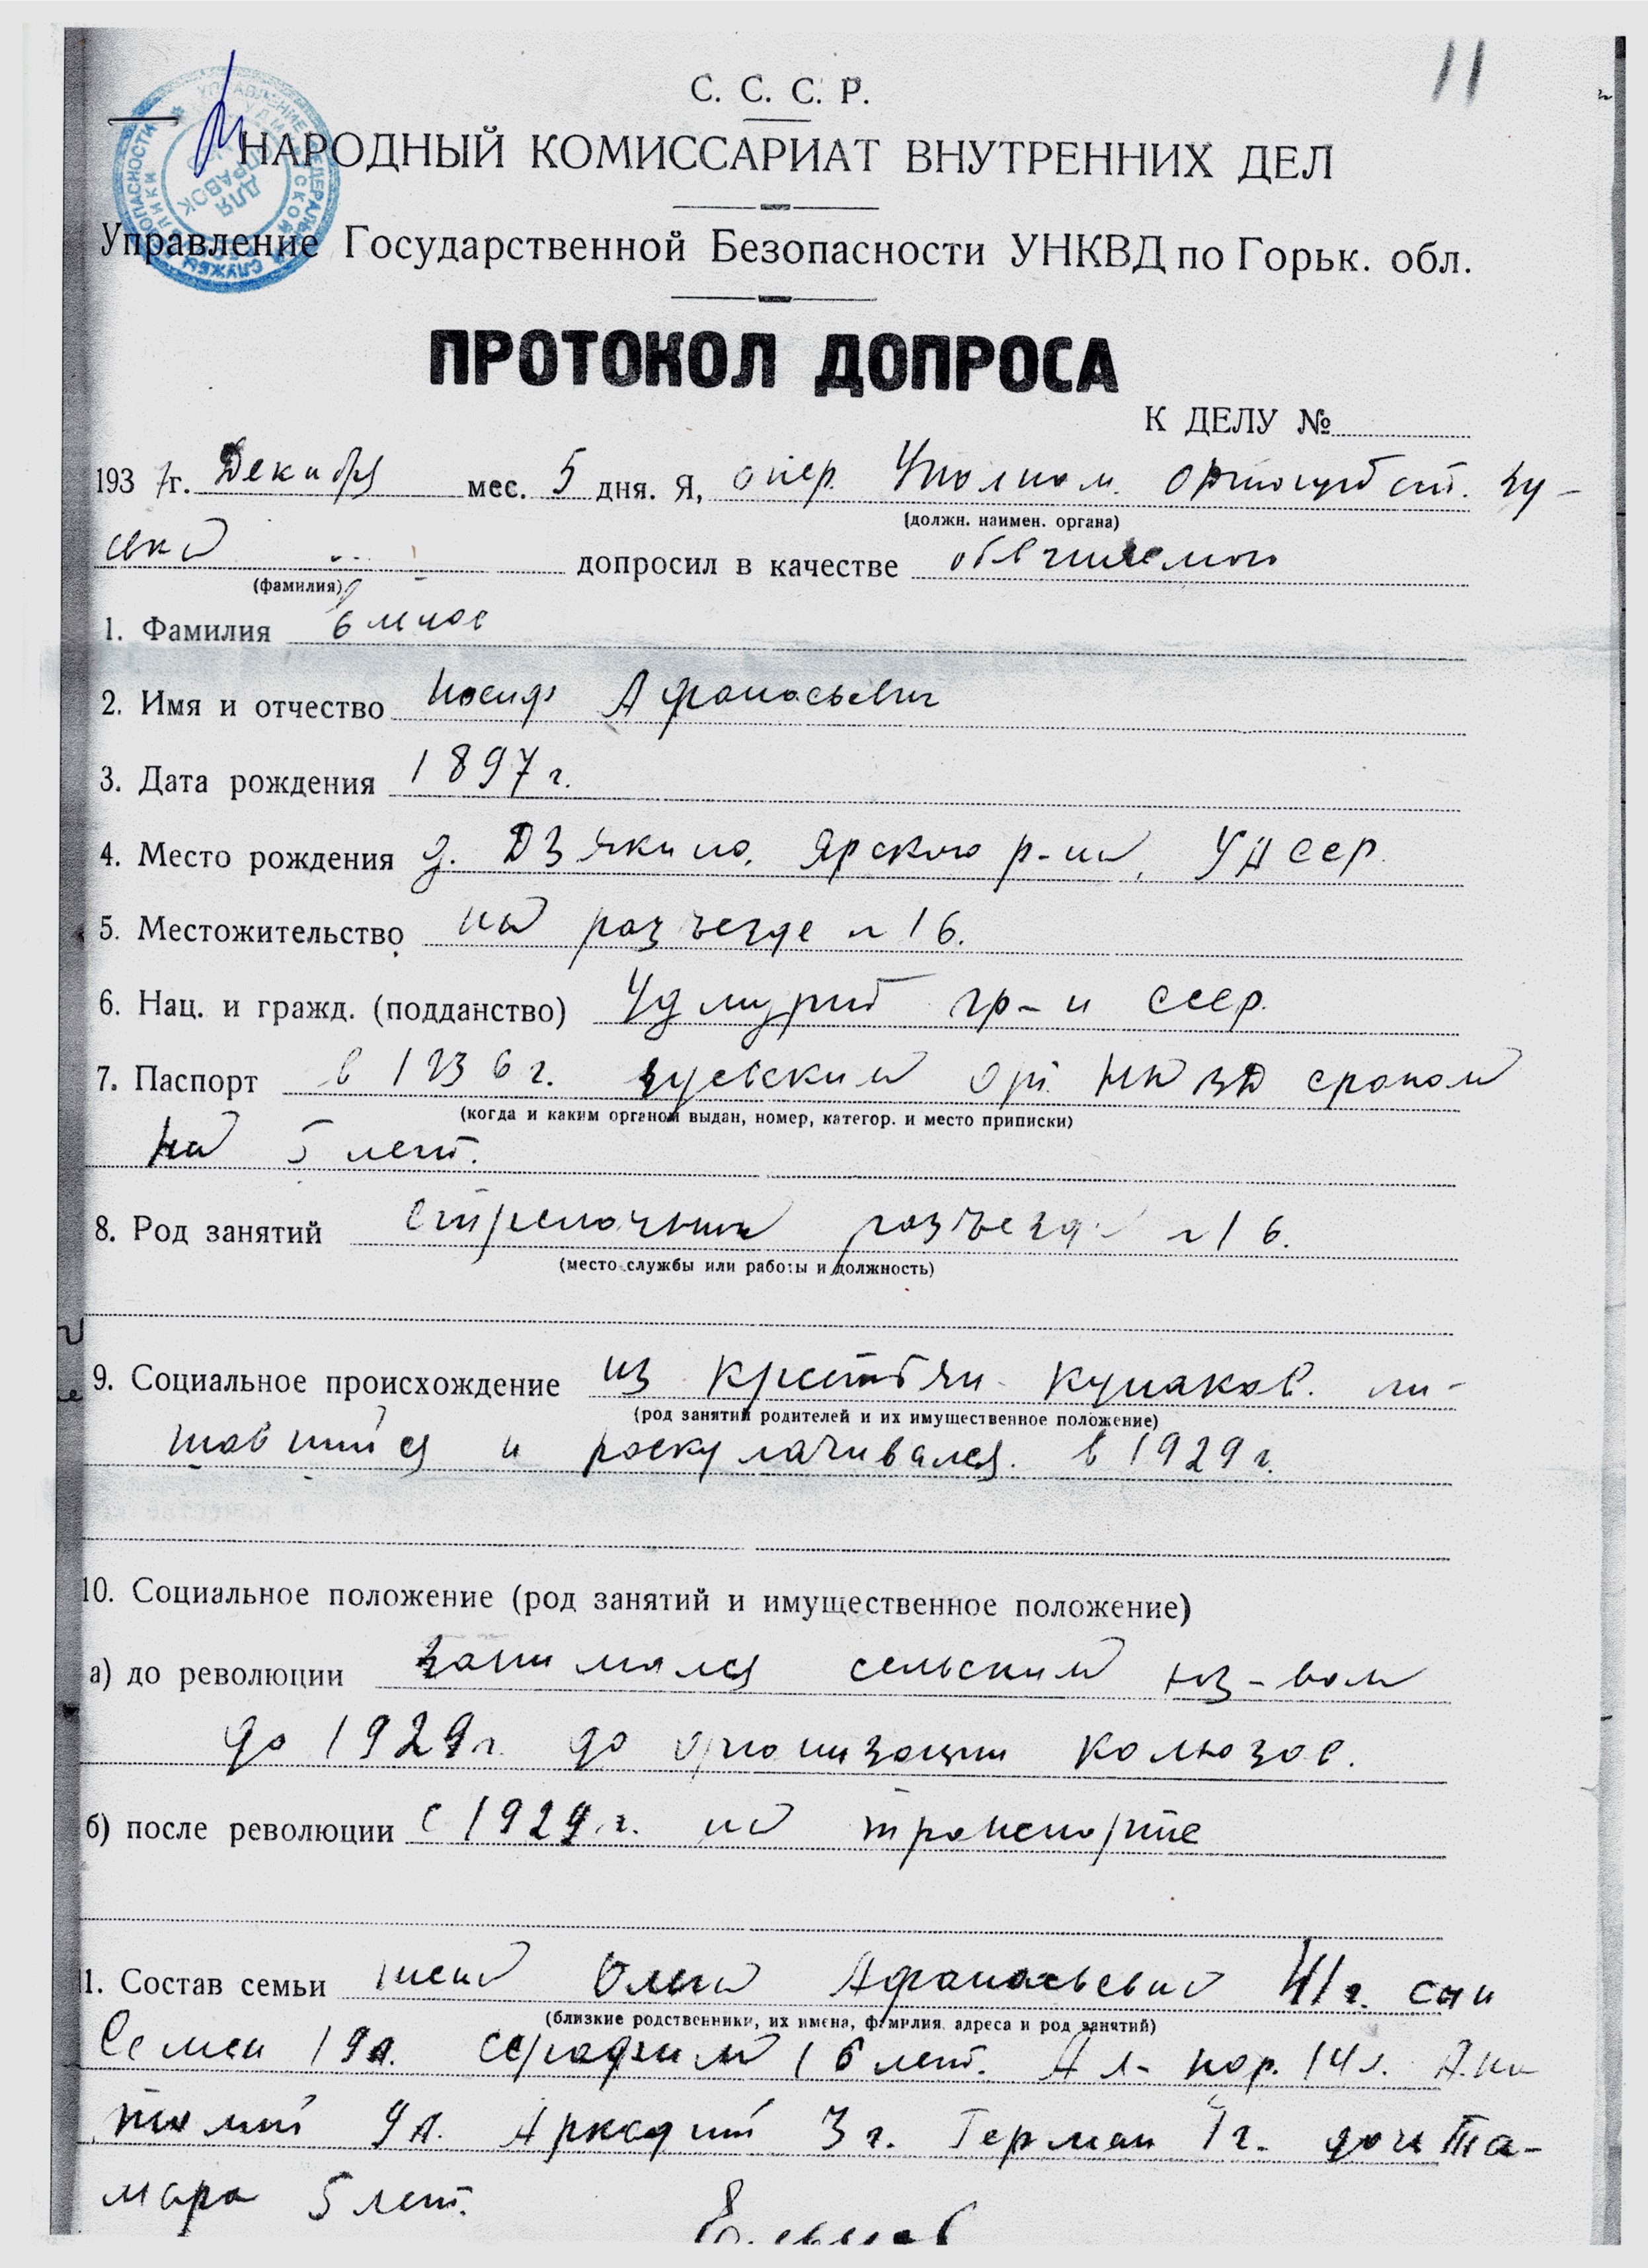 11
С. С. С. Р.
НАРОДНЫЙ КОМИССАРИАТ ВНУТРЕННИХ ДЕЛ
Управление Государственной Безопасности УНКВД по Горьк. обл.
ПРОТОКОЛ ДОПРОСА
К ДЕЛУ №
1937 г. Декабря мес. 5 дня. Я, опер. Уполном.
(должн. наимен. органа)
допросил в качестве обвиняемого
(фамилия)
1. Фамилия
2. Имя и отчество Иосиф Афанасьевич
3. Дата рождения 1897 г.
4. Место рождения д. Дзякино. Ярского р-на, УАССР.
5. Местожительство на разъезде № 16.
6. Нац. и гражд. (подданство) Удмурт гр-н СССР.
7. Паспорт в 1936 г. Зуевским НКВД сроком
(когда и каким органом выдан, номер, категор. и место приписки)
на 5 лет.
8. Род занятий Стрелочник разъезда № 16.
(место службы или работы и должность)
9. Социальное происхождение из крестьян кулаков. ли-
(род занятий родителей и их имущественное положение)
шавшийся и раскулачивался. в 1929 г.
10. Социальное положение (род занятий и имущественное положение)
а) до революции занимался сельским хоз-вом
до 1929 г. до организации колхозов.
б) после революции с 1929 г. на транспорте
1. Состав семьи жена Ольга Афанасьевна 41 г. сын
(близкие родственники, их имена, фамилия, адреса и род занятий)
Семен 19 л. Серафим 16 лет. 14 л. Ана
толий 9 л. Аркадий 3 г. Герман 1 г. дочь Та-
мара 5 лет.